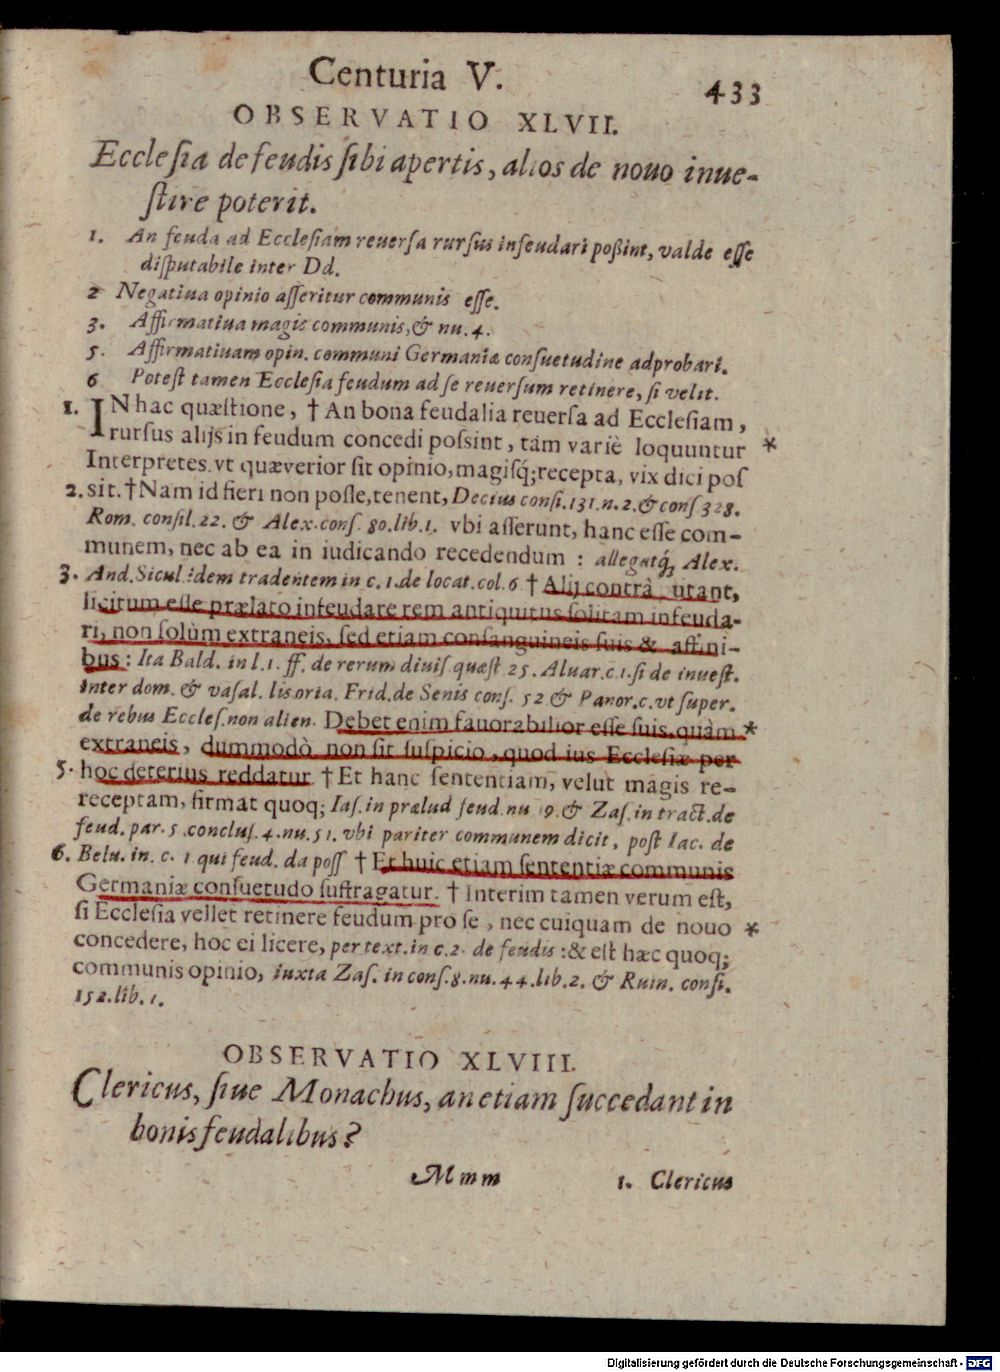 Centuria V. 433
OBSERVATIO XLVII.
Ecclesia de feudis sibi apertis, alios de nouo inue-
stire poterit.
1. An feuda ad Ecclesiam reuersa rursus infeudari poßint, valde esse
disputabile inter Dd.
2 Negatiua opinio asseritur communis esse.
3. Affirmatiua magis communis, & nu. 4.
5. Affirmatiuam opin. communi Germaniæ consuetudine adprobari.
6 Potest tamen Ecclesia feudum ad se reuersum retinere, si velit.
1. IN hac quæstione, † An bona feudalia reuersa ad Ecclesiam,
rursus alijs in feudum concedi possint, tàm variè loquuntur *
Interpretes. vt quæ verior sit opinio, magisq́; recepta, vix dici pos
2. sit. † Nam id fieri non posse, tenent, Decius consi. 131. n. 2. & cons 328.
Rom. consil. 22. & Alex. cons. 80. lib. 1. vbi asserunt, hanc esse com-
munem, nec ab ea in iudicando recedendum : allegatq́; Alex.
3. And. Sicul. idem tradentem in c. 1. de locat. col. 6 † Alij contrà utant,
licitum esse prælato infeudare rem antiquitus solitam infeuda-
ri, non solùm extraneis, sed etiam consanguineis suis & affini-
bus : Ita Bald. in l. 1. ff. de rerum diuis. quæst 25. Aluar. c. 1. si de inuest.
inter dom. & vasal. lis oria. Frid. de Senis cons. 52 & Panor. c. vt super.
de rebus Eccles. non alien. Debet enim fauorabilior esse suis, quàm *
extraneis, dummodò non sit suspicio, quod ius Ecclesiæ per
5. hoc deterius reddatur † Et hanc sententiam, velut magis re-
receptam, firmat quoq; Ias. in prælud feud. nu 19. & Zas. in tract. de
feud. par. 5. conclus. 4. nu. 51. vbi pariter communem dicit, post Iac. de
6. Belu. in. c. 1 qui feud. da poss † Et huic etiam sententiæ communis
Germaniæ consuetudo suffragatur. † Interim tamen verum est,
si Ecclesia vellet retinere feudum pro se, nec cuiquam de nouo *
concedere, hoc ei licere, per text. in c. 2. de feudis : & est hæc quoq;
communis opinio, iuxta Zas. in cons. 8. nu. 44. lib. 2. & Ruin. consi.
152. lib. 1.
OBSERVATIO XLVIII.
Clericus, siue Monachus, an etiam succedant in
bonis feudalibus?
Mmm 1. Clericus
Digitalisierung gefördert durch die Deutsche Forschungsgemeinschaft - DFG